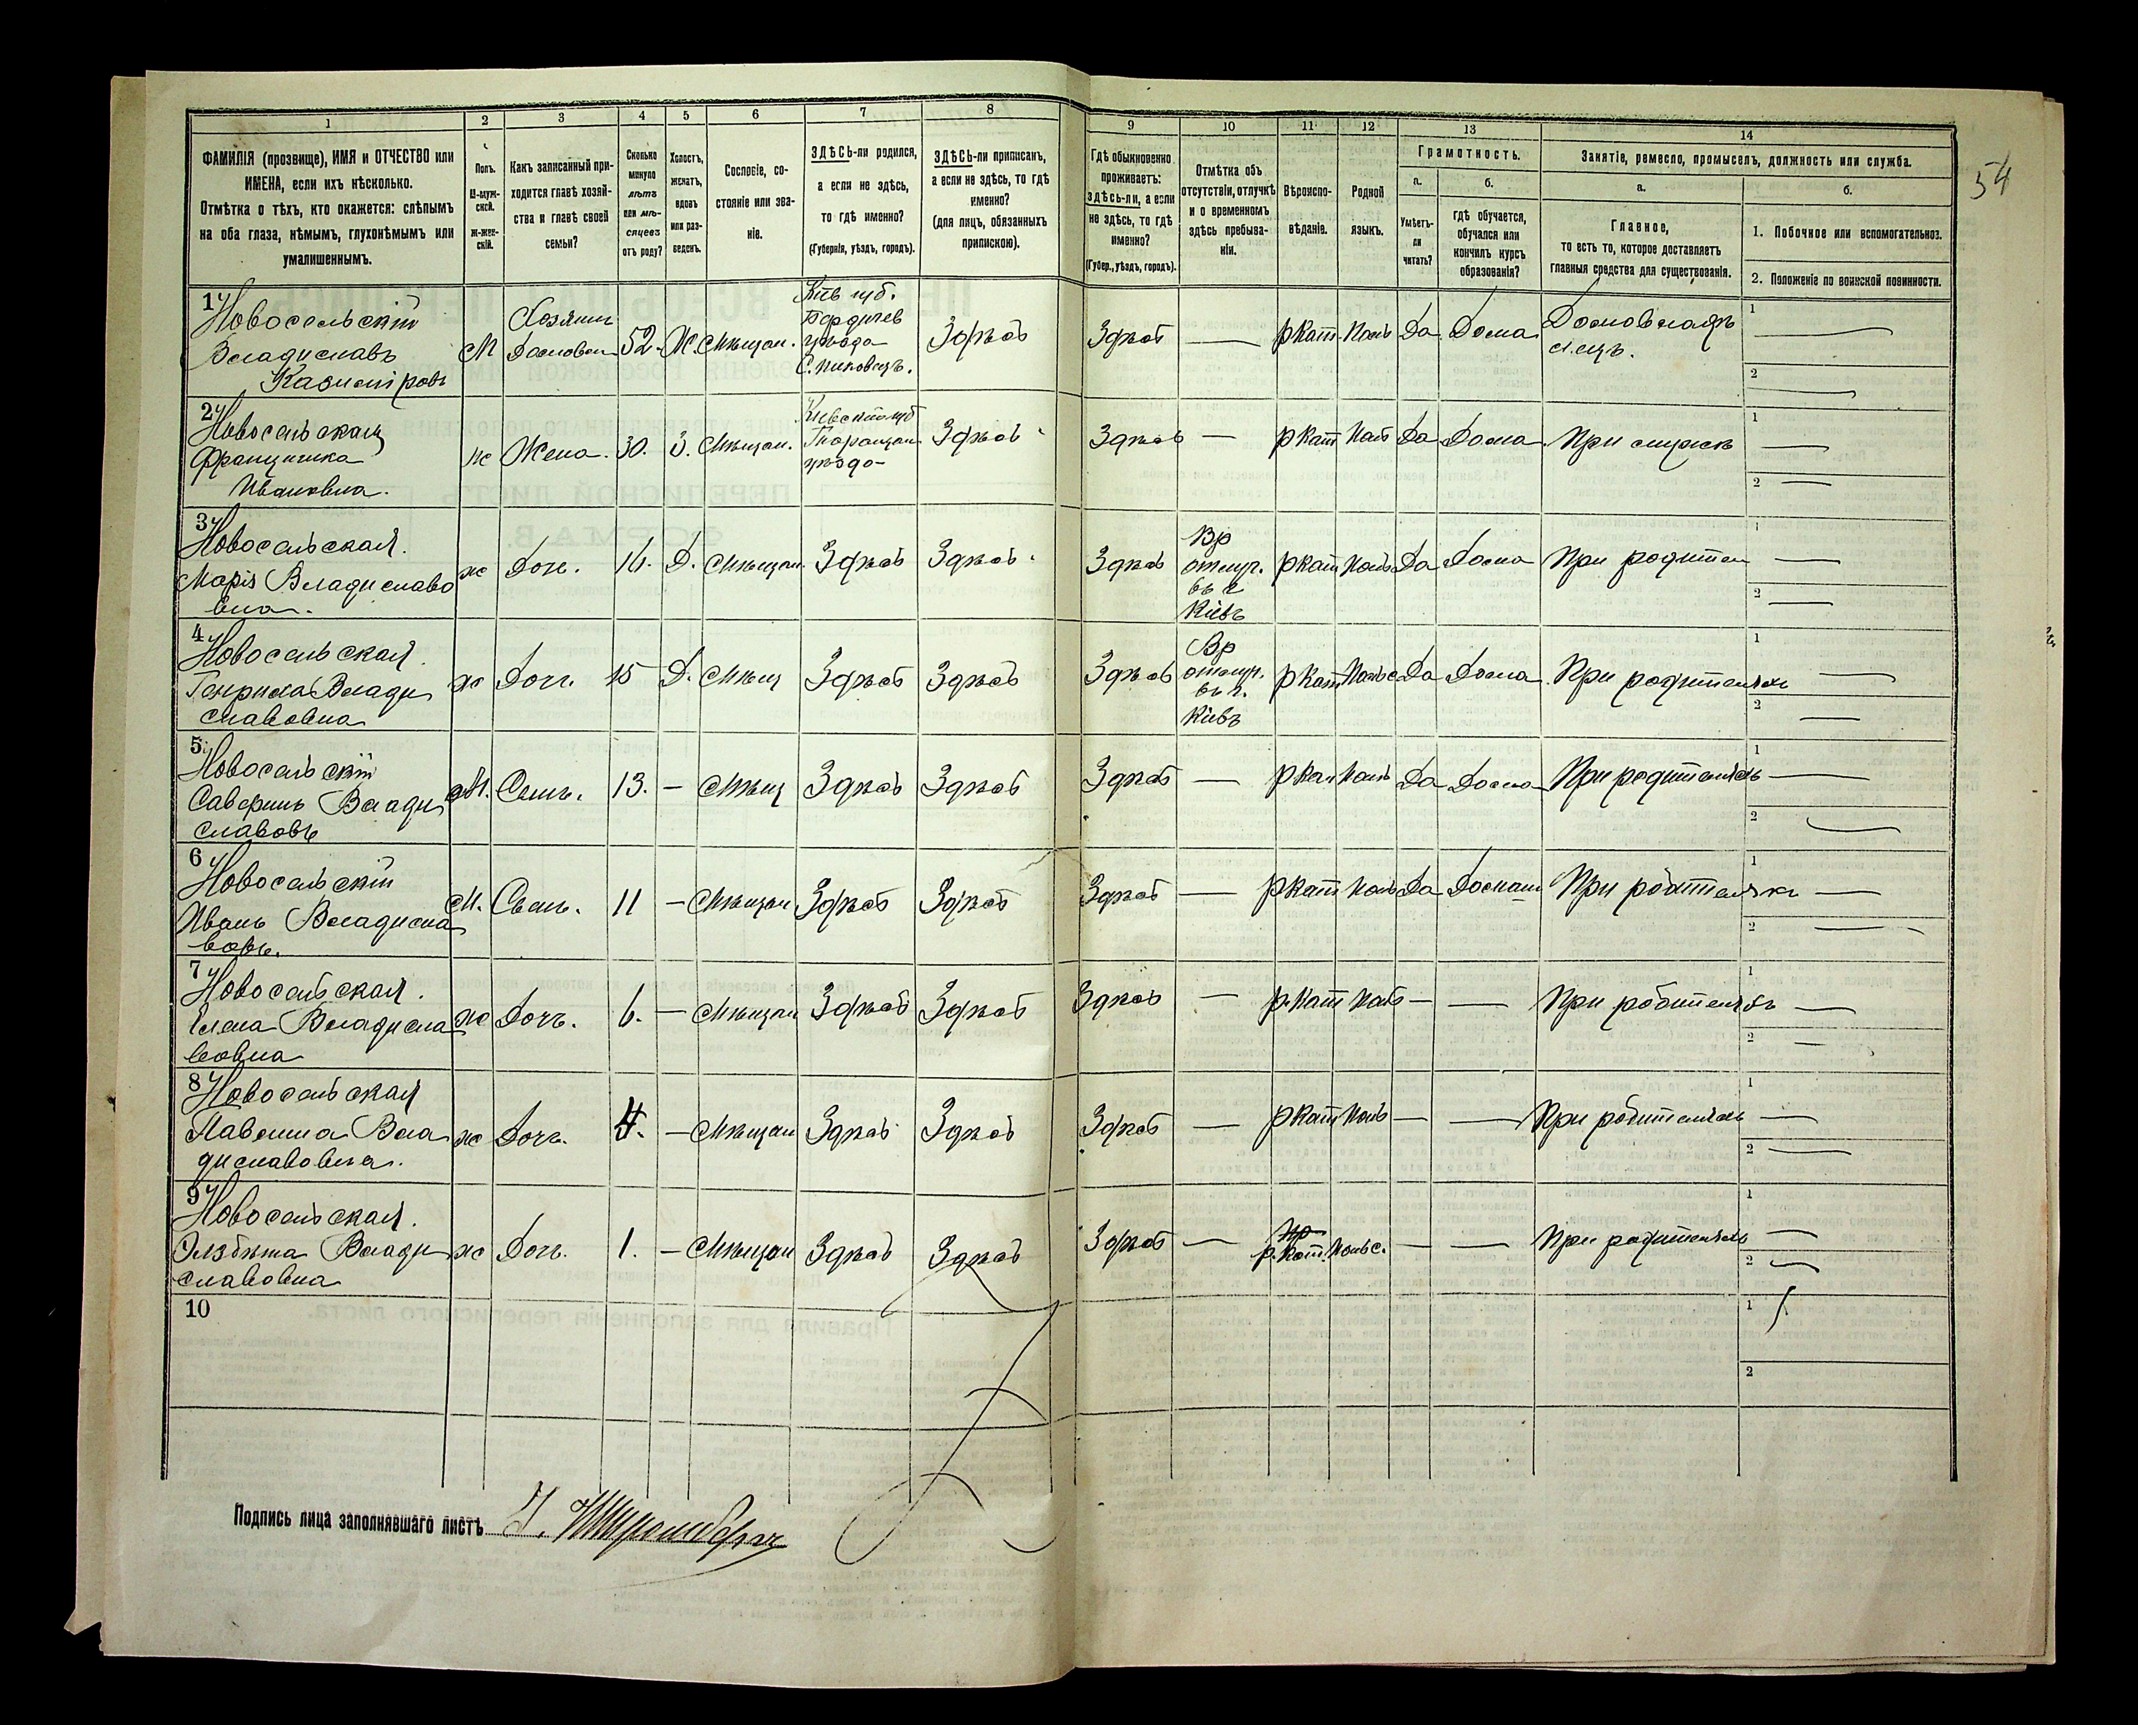 54
1 2 3 4 5 6 7 8 9 10 11 12 13 14
ФАМИЛІЯ (прозвище), ИМЯ и ОТЧЕСТВО или
ИМЕНА, если ихъ нѣсколько.
Отмѣтка о тѣхъ, кто окажется: слѣпымъ
на оба глаза, нѣмымъ, глухонѣмымъ или
умалишеннымъ.
Полъ.
М-муж-
ской.
ж-жен-
скій.
Какъ записанный при-
ходится главѣ хозяй-
ства и главѣ своей
семьи?
Сколько
минуло
лѣтъ
или мѣ-
сяцевъ
отъ роду?
Холостъ,
женатъ,
вдовъ
или раз-
веденъ.
Сословіе, со-
стояніе или зва-
ніе.
ЗДѢСЬ-ли родился,
а если не здѣсь,
то гдѣ именно?
(Губернія, уѣздъ, городъ).
ЗДѢСЬ-ли приписанъ,
а если не здѣсь, то гдѣ
именно?
(для лицъ, обязанныхъ
припискою).
Гдѣ обыкновенно
проживаетъ:
ЗДѢСЬ-ли, а если
не здѣсь, то гдѣ
именно?
(Губер., уѣздъ, городъ).
Отмѣтка объ
отсутствіи, отлучкѣ
и о временномъ
здѣсь пребыва-
ніи.
Вѣроиспо-
вѣданіе.
Родной
языкъ.
Грамотность.
а.
Умѣетъ-
ли
читать?
б.
гдѣ обучается,
обучался или
кончилъ курсъ
образованія?
Занятіе, ремесло, промыселъ, должность или служба.
а.
Главное,
то есть то, которое доставляетъ
главныя средства для существованія.
б.
1. Побочное или вспомогательное.
2. Положеніе по воинской повинности.
1 Новосельскій
Владиславъ
Казиміровъ
М
Хозяинъ
Домовл
52. Ж. Мѣщан.
Кіев губ.
Бердичев
уѣзда
Здѣсь Здѣсь — р кат. Поль Да Дома
Домовладѣ
лецъ.
1 —
2 —
2 Новосельская
Францишка
Ивановна.
ж Жена. 30. З. Мѣщан.
Кіевской губ
Таращан
уѣзда
Здѣсь Здѣсь — р кат Поль Да Дома При мужѣ
1 —
2 —
3 Новосельская.
Марія Владиславо
вна.
ж Доч. 16. Д. Мѣщан. Здѣсь Здѣсь. Здѣсь
Вр
отлуч.
въ г
Кіевъ
р кат Поль Да Дома При родител
1 —
2 —
4 Новосельская.
Генрика Влади
славовна
ж Доч. 15 Д. Мѣщ Здѣсь Здѣсь Здѣсь
Вр
отлуч.
въ г.
Кіевъ
р кат Польс Да Дома. При родителяхъ
1 —
2 —
5 Новосельскій
Северинъ Влади
славовъ
М. Сынъ. 13. — Мѣщ Здѣсь Здѣсь Здѣсь — р кат Поль Да Дома При родителяхъ
1 —
2 —
6 Новосельскій
Иванъ Владисла
вовъ.
М. Сынъ. 11 — Мѣщан Здѣсь Здѣсь Здѣсь — р кат Поль Да Дома При родителяхъ
1 —
2 —
7 Новосельская.
Елена Владисла
вовна
ж Дочь. 6. — Мѣщан Здѣсь Здѣсь Здѣсь — р. кат Поль — — При родителяхъ
1 —
2 —
8 Новосельская
Павлина Вла
диславовна.
ж Дочь. 4. — Мѣщан Здѣсь Здѣсь Здѣсь — р кат Поль — — При родителяхъ
1 —
2 —
9 Новосельская.
Элзбѣта Влади
славовна
ж Дочь. 1. — Мѣщан Здѣсь Здѣсь Здѣсь — р. кат. Польс. — — При родителяхъ
1 —
2 —
10
1
2
Подпись лица заполнявшаго листъ